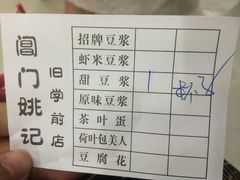 阊门姚记
旧学前店
招牌豆浆
虾米豆浆
甜豆浆 1
原味豆浆
茶叶蛋
荷叶包美人
豆腐花